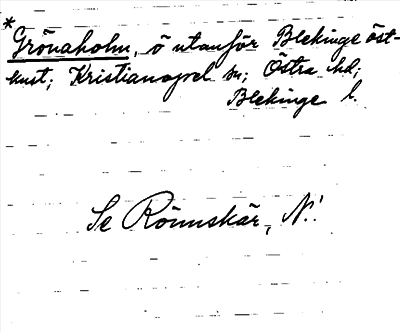 * Grönaholm, ö utanför Blekinge öst-
kust; Kristianopel sn; Östra hd;
Blekinge l.
Se Rönnskär, N.!